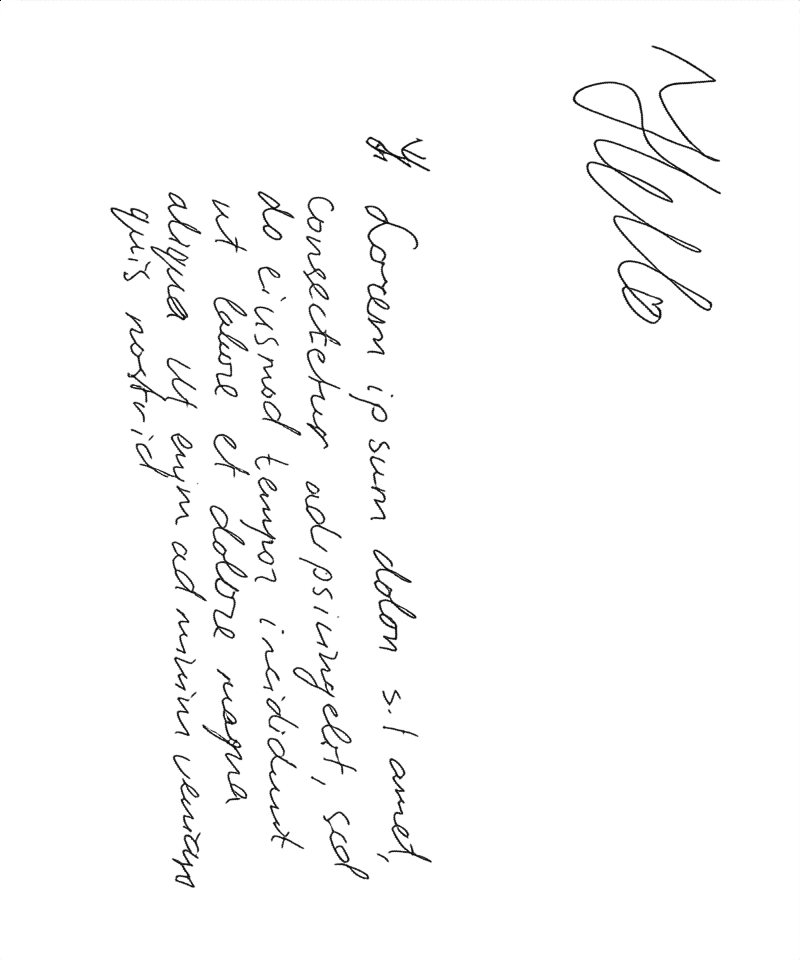 Hello
Lorem ipsum dolon s.t amet,
consectetur adipsiingelit, sed
do eiusmod tempor incididunt
ut labore et dolore magna
aliqua Ut enim ad minim veniam
quis nostrid